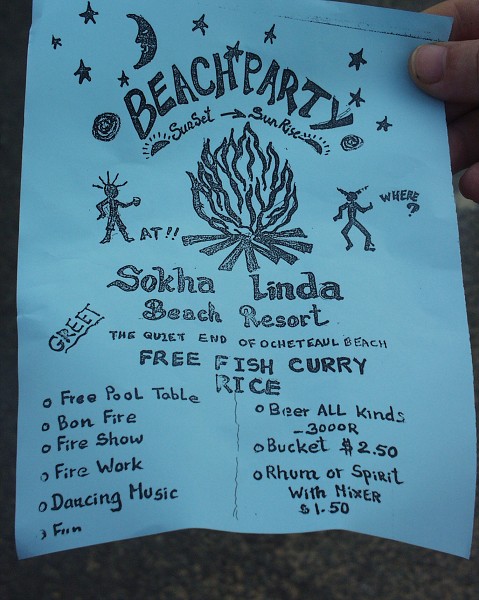 BEACH PARTY
SunSet → SunRise
WHERE ?
AT!!
Sokha Linda
Beach Resort
GREET
THE QUIET END OF OCHETEAUL BEACH
FREE FISH CURRY
RICE
Free Pool Table
Bon Fire
Fire Show
Fire Work
Dancing Music
Fun
Beer ALL Kinds
-3000R
Bucket $2.50
Rhum or Spirit
With MixER
$1.50